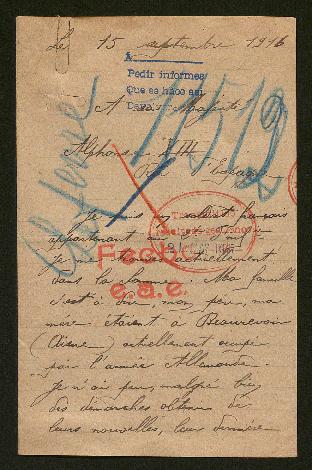 Le 15 septembre 1916
A
Pedir informes
Que se hace así
A Sa Majesté
Alphonse XIII
Roi d'Espagne
1512
Je suis un soldat français
appartenant au
je me trouve actuellement
dans la Somme. Ma famille
c'est à dire, mon père, ma
mère étaient à Beaurevoir
(Aisne) actuellement occupé
par l'armée Allemande.
Je n'ai pu, malgré bien
des démarches obtenir de
leurs nouvelles, leur dernière
Fecho
e.a.e.